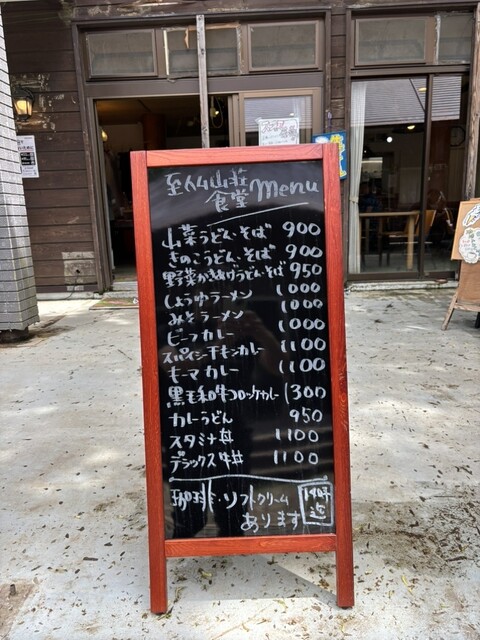 至仏山荘
食堂 menu
山菜うどん、そば 900
きのこうどん、そば 900
野菜かきあげうどん、そば 950
しょうゆラーメン 1000
みそラーメン 1000
ビーフカレー 1000
スパイシーチキンカレー 1100
キーマカレー 1100
黒毛和牛コロッケカレー 1300
カレーうどん 950
スタミナ丼 1100
デラックス牛丼 1100
珈琲・ソフトクリーム
あります
14時
迄